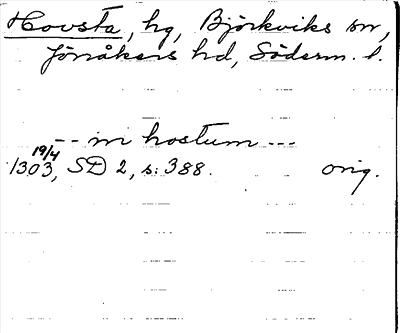 Hovsta, hg, Björkviks sn,
Jönåkers hd, Söderm. l.
-- in hostum ---
19/4
1303, SD 2, s. 388. orig.